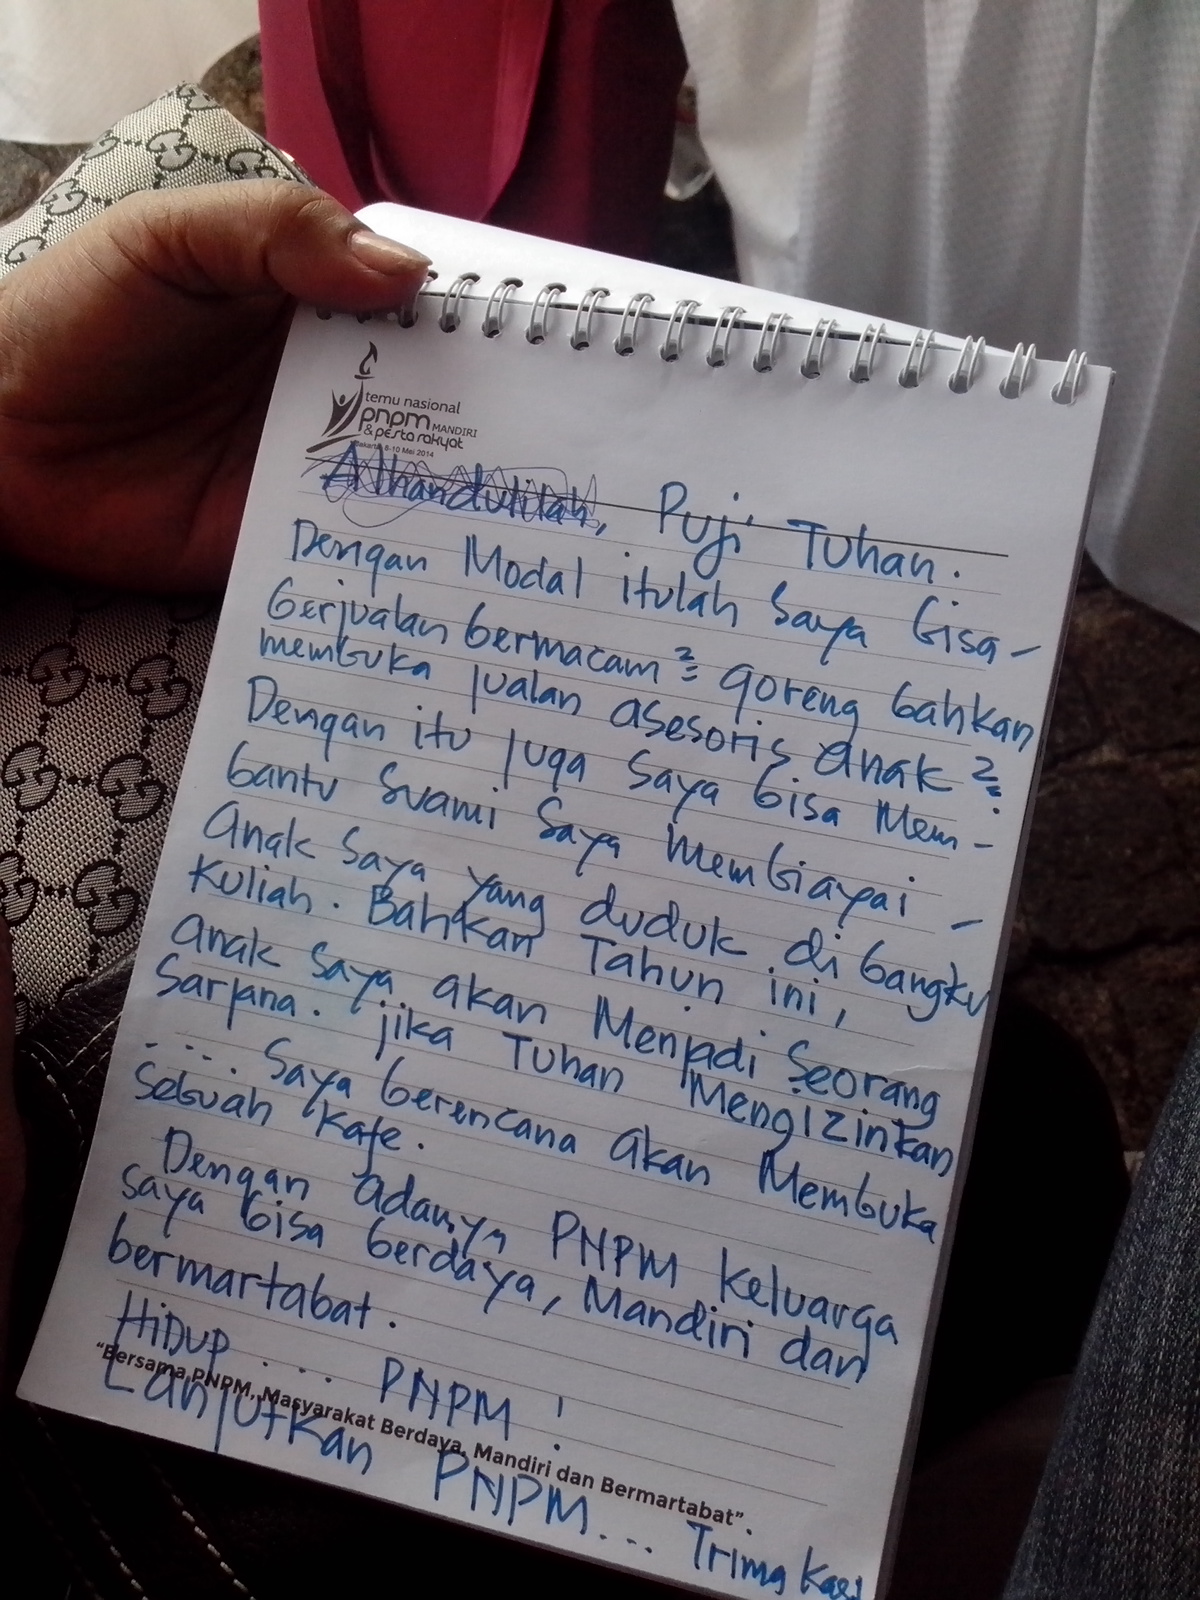 temu nasional
pnpm MANDIRI
& pesta rakyat
Jakarta, 8-10 Mei 2014
Alhandulilah, Puji Tuhan.
Dengan Modal itulah Saya bisa-
berjualan bermacam² goreng bahkan
membuka jualan asesoris anak².
Dengan itu juga Saya bisa Mem-
bantu Suami Saya Membiayai -
anak Saya yang duduk di bangku
Kuliah. Bahkan Tahun ini,
anak Saya akan Menjadi Seorang
Sarjana. jika Tuhan Mengizinkan
.... Saya berencana akan Membuka
Sebuah Kafe.
Dengan adanya PNPM Keluarga
saya bisa berdaya, Mandiri dan
bermartabat.
HiDUP .... PNPM !
"Bersama PNPM, Masyarakat Berdaya, Mandiri dan Bermartabat".
Lanjutkan PNPM... Trima Kasi